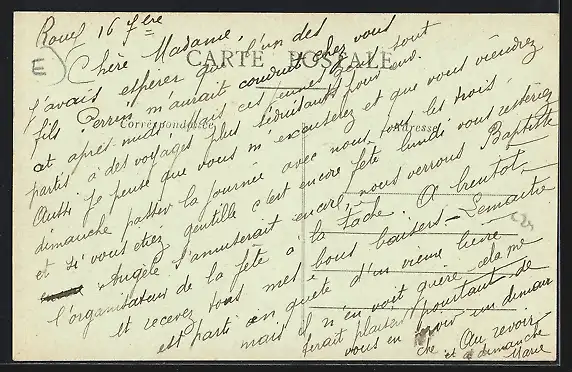 Rouef 16 7bre
Chère Madame,
CARTE POSTALE
J'avais espérer que l'un des
fils Perrin m'aurait conduit chez vous
cet après midi, mais ces jeunes gens sont
partis à des voyages plus séduisants pour eux.
Correspondance
Adresse
Aussi je pense que vous m'excuserez et que vous viendrez
dimanche passer la journée avec nous, tous les trois.
et si vous étiez gentille c'est encore fête lundi vous resteriez
Angèle s'amuserait encore, nous verrons Baptiste
l'organisateur de la fête à la tâche. A bientôt
et recevez tous mes bons baisers - Lemaitre
est parti en quête d'un vieux lièvre
mais il n'en voit guère cela me
ferait plaisir pourtant de
vous en avoir un diman
che. Au revoir
et à dimanche
Marie